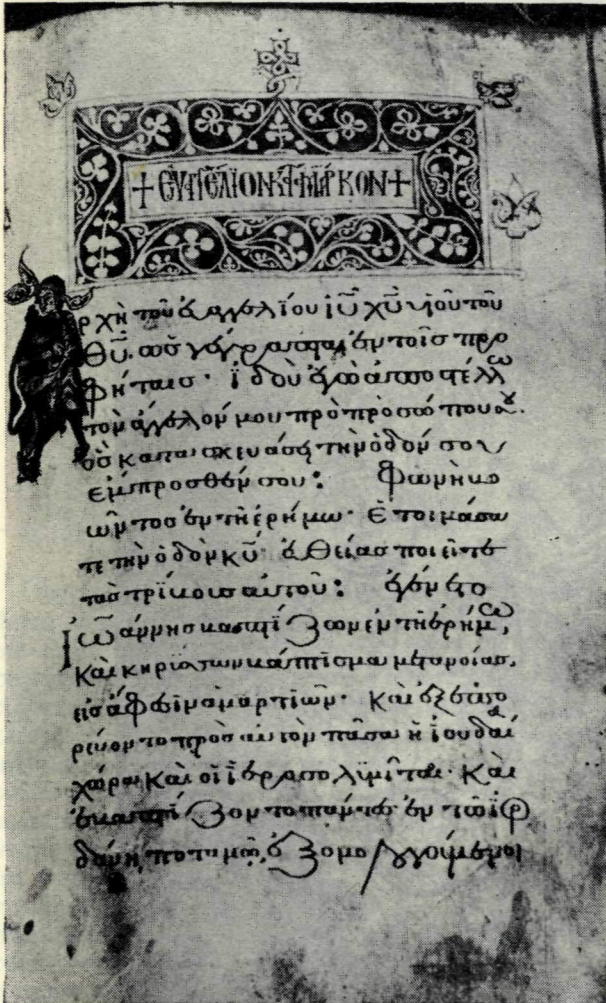 + ΕΥΑΓΓΕΛΙΟΝ ΚΑΤΑ ΜΑΡΚΟΝ +
ρχὴ τοῦ ἐυαγγελίου ιῦ χῦ υἱοῦ τοῦ
θῦ. ὡς γέγραπται ἐν τοῖς προ
φήταις · ἰδοὺ ἐγὼ ἀποστέλλω
τὸν ἄγγελόν μου πρὸ προσώπου σου ·
ὃς κατασκευάσει τὴν ὁδόν σου
ἔμπροσθέν σου : φωνὴ βο
ῶντος ἐν τῇ ἐρήμω · ἑτοιμάσα
τε τὴν ὁδὸν κῦ · ἐυθείας ποιεῖτε
τὰς τρίβους αὐτοῦ : ἐγένετο
ἰωάννης βαπτίζων ἐν τῇ ἐρήμω,
καὶ κηρύσσων βάπτισμα μετανοίας,
εἰς ἄφεσιν ἁμαρτιῶν · καὶ ἐξεπο
ρεύοντο πρὸς αὐτὸν πᾶσα ἡ ἰουδαία
χώρα καὶ οἱ ἱεροσολυμῖται · καὶ
ἐβαπτίζοντο πάντες ἐν τῶ ἰορ
δάνη ποταμῶ, ἐξομολογούμενοι